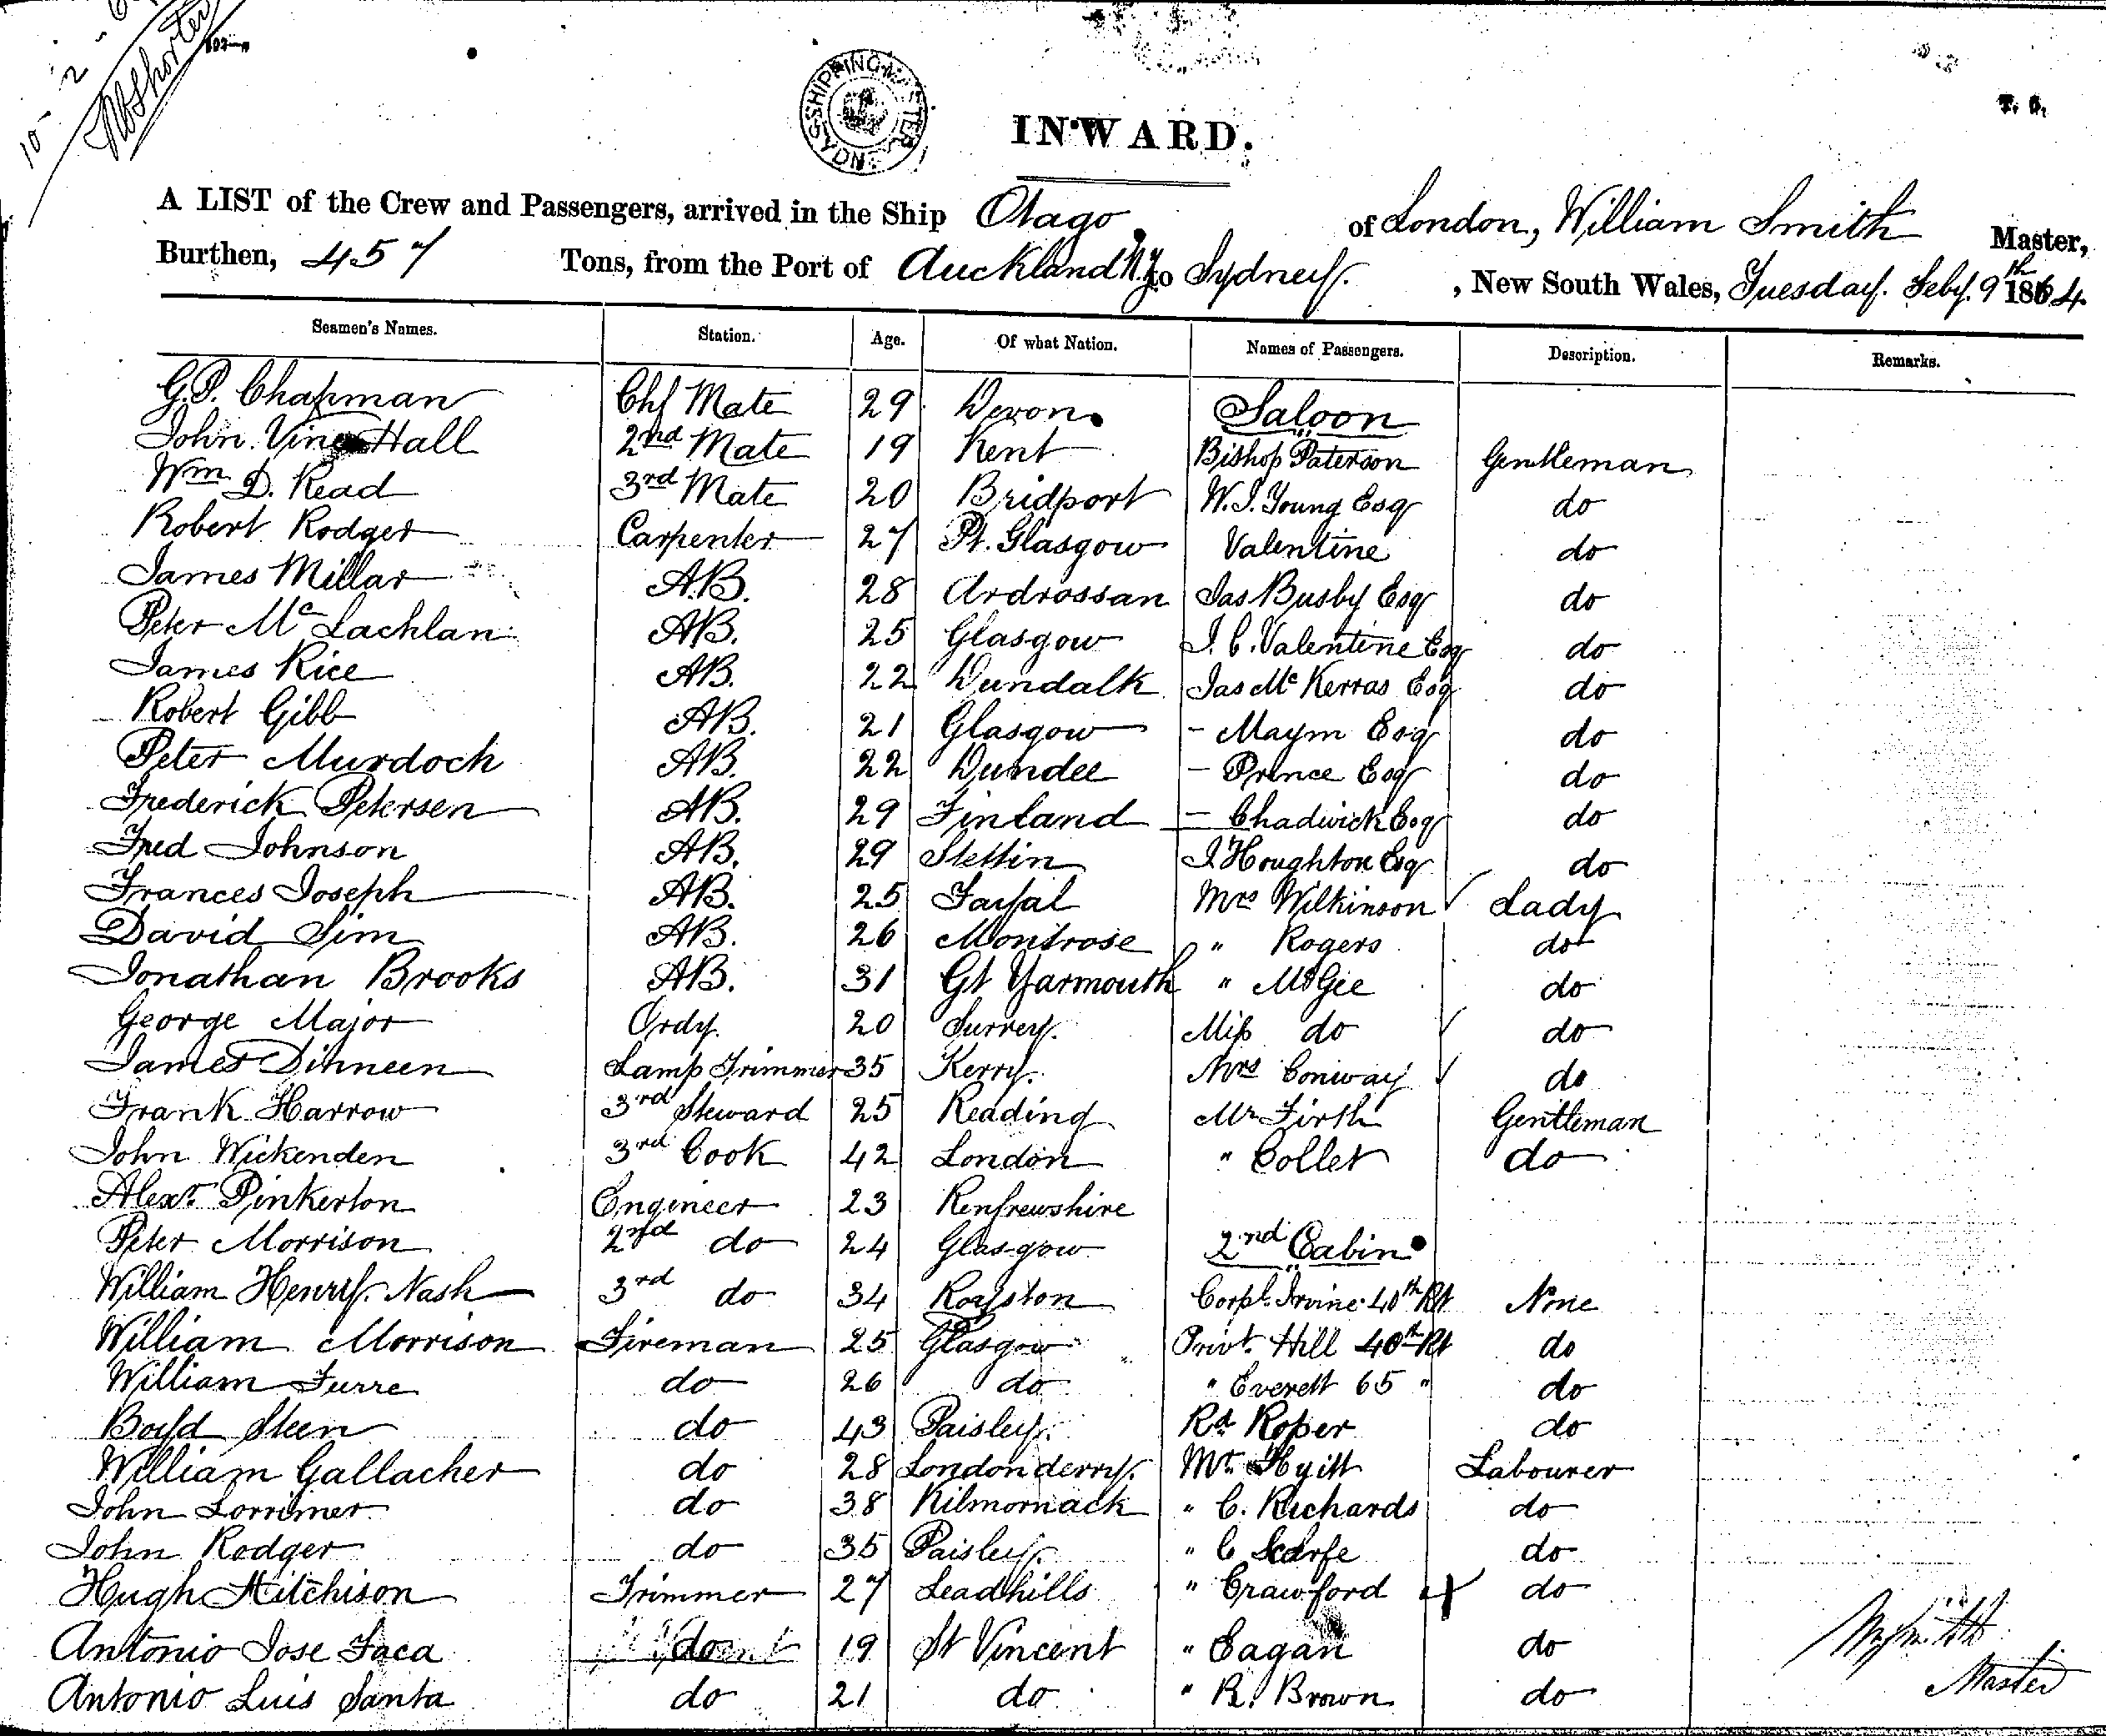 10-2-6
SHIPPING MASTER SYDNEY
T. 6.
INWARD.
A LIST of the Crew and Passengers, arrived in the Ship Otago of London, William Smith Master,
Burthen, 457 Tons, from the Port of Auckland N.Z to Sydney. , New South Wales, Tuesday. Feby. 9th 1864.
Seamen's Names. Station. Age. Of what Nation. Names of Passengers. Description. Remarks.
G.P. Chapman Chf Mate 29 Devon. Saloon
John Vine Hall 2nd Mate 19 Kent Bishop Paterson Gentleman
Wm D. Read 3rd Mate 20 Bridport W.I. Young Esq do
Robert Rodger Carpenter 27 Pt. Glasgow Valentine do
James Millar A.B. 28 Ardrossan Jas Busby Esq do
Peter Mc Lachlan AB. 25 Glasgow I. C. Valentine Esq do
James Rice AB. 22 Dundalk Jas Mc Kerras Esq do
Robert Gibb AB. 21 Glasgow - Maym Esq do
Peter Murdoch AB. 22 Dundee - Prince Esq do
Frederick Petersen AB. 29 Finland - Chadwick Esq do
Fred Johnson AB. 29 Stettin I Houghton Esq do
Frances Joseph AB. 25 Fayal Mrs Wilkinson Lady
David Sim AB. 26 Montrose " Rogers do
Jonathan Brooks AB. 31 Gt Yarmouth " McGee do
George Major Ordy. 20 Surrey. Miss do do
James Dinneen Lamp Trimmer 35 Kerry. Mrs Conway do
Frank Harrow 3rd Steward 25 Reading Mr Firth Gentleman
John Wickenden 3rd Cook 42 London " Collet do
Alexr. Pinkerton Engineer 23 Renfrewshire
Peter Morrison 2nd do 24 Glasgow 2nd Cabin
William Henry. Nash 3rd do 34 Royston Corpl. Irvine 40th Rt None
William Morrison Fireman 25 Glasgow Privt. Hill 40th Rt do
William Furre do 26 do " Everett 65 " do
Boyd Steen do 43 Paisley. Rd Roper do
William Gallacher do 28 Londonderry. Mr. Hyitt Labourer
John Lorrimer do 38 Kilmornack " C. Richards do
John Rodger do 35 Paisley. " C Scarfe do
Hugh Hitchison Trimmer 27 Leadhills " Crawford do
Antonio Jose Faca do 19 St Vincent " Eagan do
Antonio Luis Santa do 21 do " R. Brown do
Wm Smith
Master